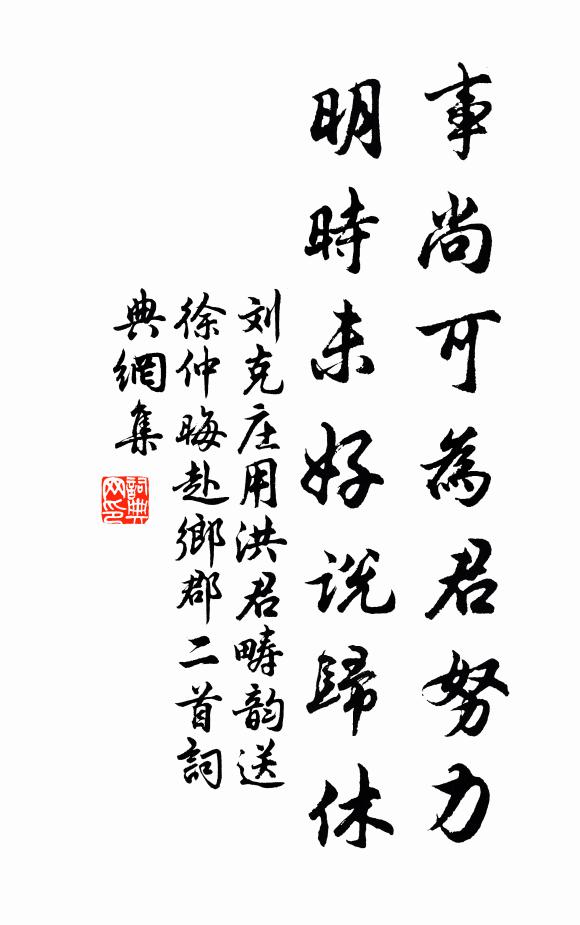 事尚可為君努力
明時未好説歸休
刘克庄用洪君疇韵送
徐仲晦赴鄉郡二首詞
典網集
詞典
网印